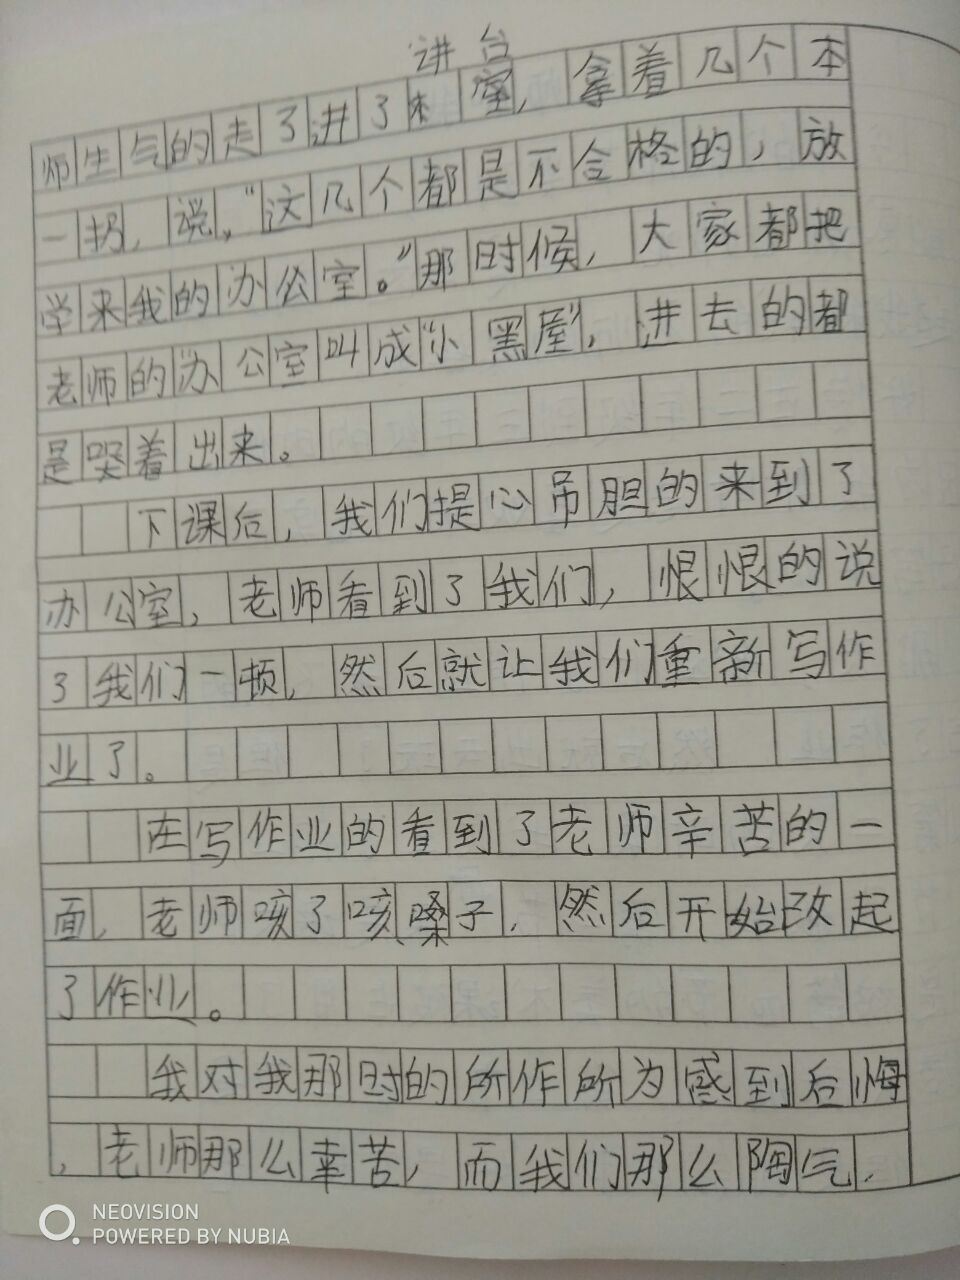 讲台
师生气的走了进了教室，拿着几个本
一扔，说，“这几个都是不合格的，放
学来我的办公室。”那时候，大家都把
老师的“办公室叫成“小黑屋”，进去的都
是哭着出来。
下课后，我们提心吊胆的来到了
办公室，老师看到了我们，恨恨的说
了我们一顿，然后就让我们重新写作
业了。
在写作业的看到了老师辛苦的一
面，老师咳了咳嗓子，然后开始改起
了作业。
我对我那时的所作所为感到后悔
，老师那么幸苦，而我们那么陶气，
NEOVISION
POWERED BY NUBIA